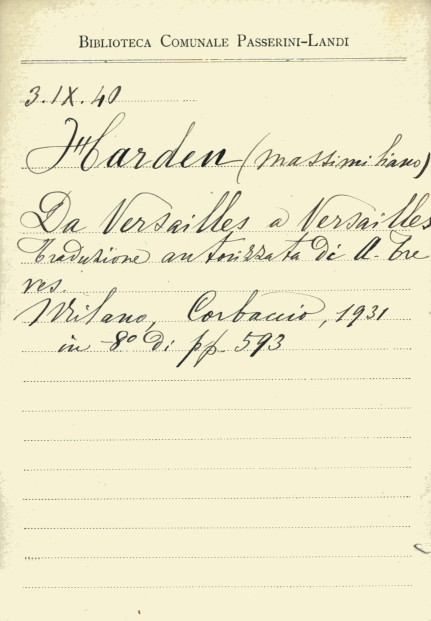 BIBLIOTECA COMUNALE PASSERINI-LANDI
3.IX.40
Harden (Massimiliano)
Da Versailles a Versailles
Traduzione autorizzata di A. Tre
ves.
Milano, Corbaccio, 1931
in 8º di pp. 593